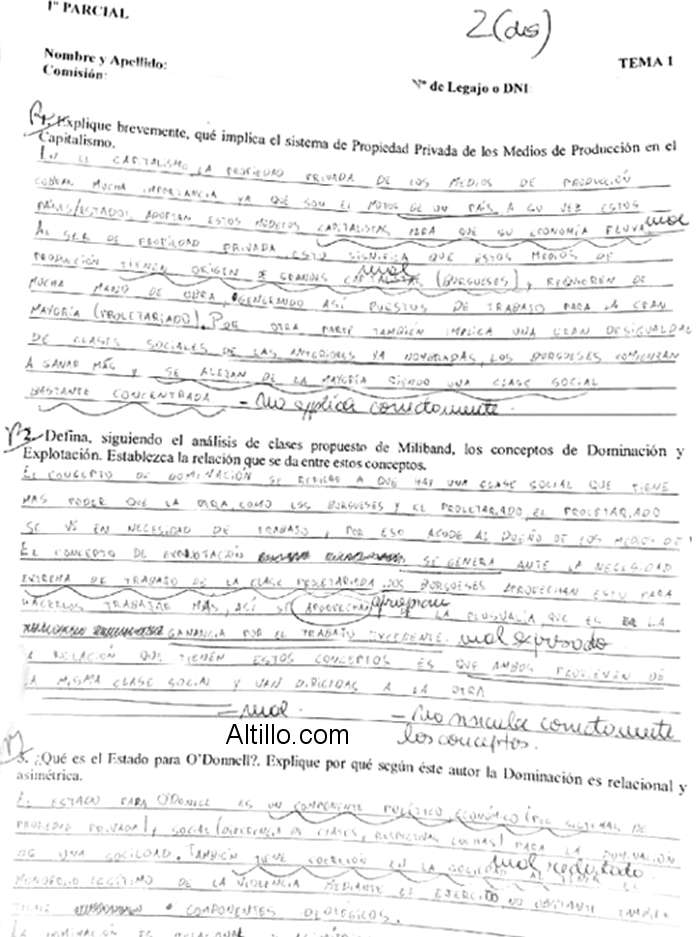 1º PARCIAL
2 (dos)
Nombre y Apellido:
TEMA 1
Comisión:
Nº de Legajo o DNI
1. Explique brevemente, qué implica el sistema de Propiedad Privada de los Medios de Producción en el
Capitalismo.
EN EL CAPITALISMO, LA PROPIEDAD PRIVADA DE LOS MEDIOS DE PRODUCCIÓN
COBRAN MUCHA IMPORTANCIA YA QUE SON EL MOTOR DE UN PAÍS, A SU VEZ ESTOS
PAÍSES/ESTADOS ADOPTAN ESTOS MODELOS CAPITALISTAS PARA QUE SU ECONOMÍA FLUYA mal
AL SER DE PROPIEDAD PRIVADA, ESTO SIGNIFICA QUE ESTOS MEDIOS DE
mal
PRODUCCIÓN TIENEN ORIGEN DE GRANDES (BURGUESES), REQUIEREN DE
MUCHA MANO DE OBRA, GENERANDO ASÍ PUESTOS DE TRABAJO PARA LA GRAN
MAYORÍA (PROLETARIADO). POR OTRA PARTE TAMBIÉN IMPLICA UNA GRAN DESIGUALDAD
DE CLASES SOCIALES DE LAS ANTERIORES YA NOMBRADAS, LOS BURGUESES COMIENZAN
A GANAR MÁS Y SE ALEJAN DE LA MAYORÍA SIENDO UNA CLASE SOCIAL
BASTANTE CONCENTRADA - No explica correctamente.
2. Defina, siguiendo el análisis de clases propuesto de Miliband, los conceptos de Dominación y
Explotación. Establezca la relación que se da entre estos conceptos.
EL CONCEPTO DE DOMINACIÓN SE REFIERE A QUE HAY UNA CLASE SOCIAL QUE TIENE
MAS PODER QUE LA OTRA, COMO LOS BURGUESES Y EL PROLETARIADO, EL PROLETARIADO
SE VE EN NECESIDAD DE TRABAJO, POR ESO ACUDE AL DUEÑO DE LOS MEDIOS DE
EL CONCEPTO DE EXPLOTACIÓN SE GENERA ANTE LA NECESIDAD
EXTREMA DE TRABAJO DE LA CLASE PROLETARIADA, LOS BURGUESES APROVECHAN ESTO PARA
HACERLOS TRABAJAR MÁS, ASÍ SE APROVECHAN apropian LA PLUSVALÍA, QUE ES LA
GANANCIA POR EL TRABAJO EXCEDENTE. mal expresado
LA RELACIÓN QUE TIENEN ESTOS CONCEPTOS ES QUE AMBOS PROVIENEN DE
LA MISMA CLASE SOCIAL Y VAN DIRIGIDAS A LA OTRA
mal. - No vincula correctamente
Altillo.com
los conceptos.
3. ¿Qué es el Estado para O'Donnell?. Explique por qué según éste autor la Dominación es relacional y
asimétrica.
EL ESTADO PARA O'DONELL ES UN COMPONENTE POLÍTICO ECONÓMICO (POR SISTEMAS DE
PROPIEDAD PRIVADA), SOCIAL (DIFERENCIA DE CLASES, ) PARA LA DOMINACIÓN
DE UNA SOCIEDAD. TAMBIÉN TIENE COERCIÓN EN LA SOCIEDAD AL TENER EL mal redactado
MONOPOLIO LEGÍTIMO DE LA VIOLENCIA MEDIANTE EL EJERCITO NO OBSTANTE TAMBIÉN
TIENE COMPONENTES IDEOLÓGICOS.
LA DOMINACIÓN ES RELACIONAL